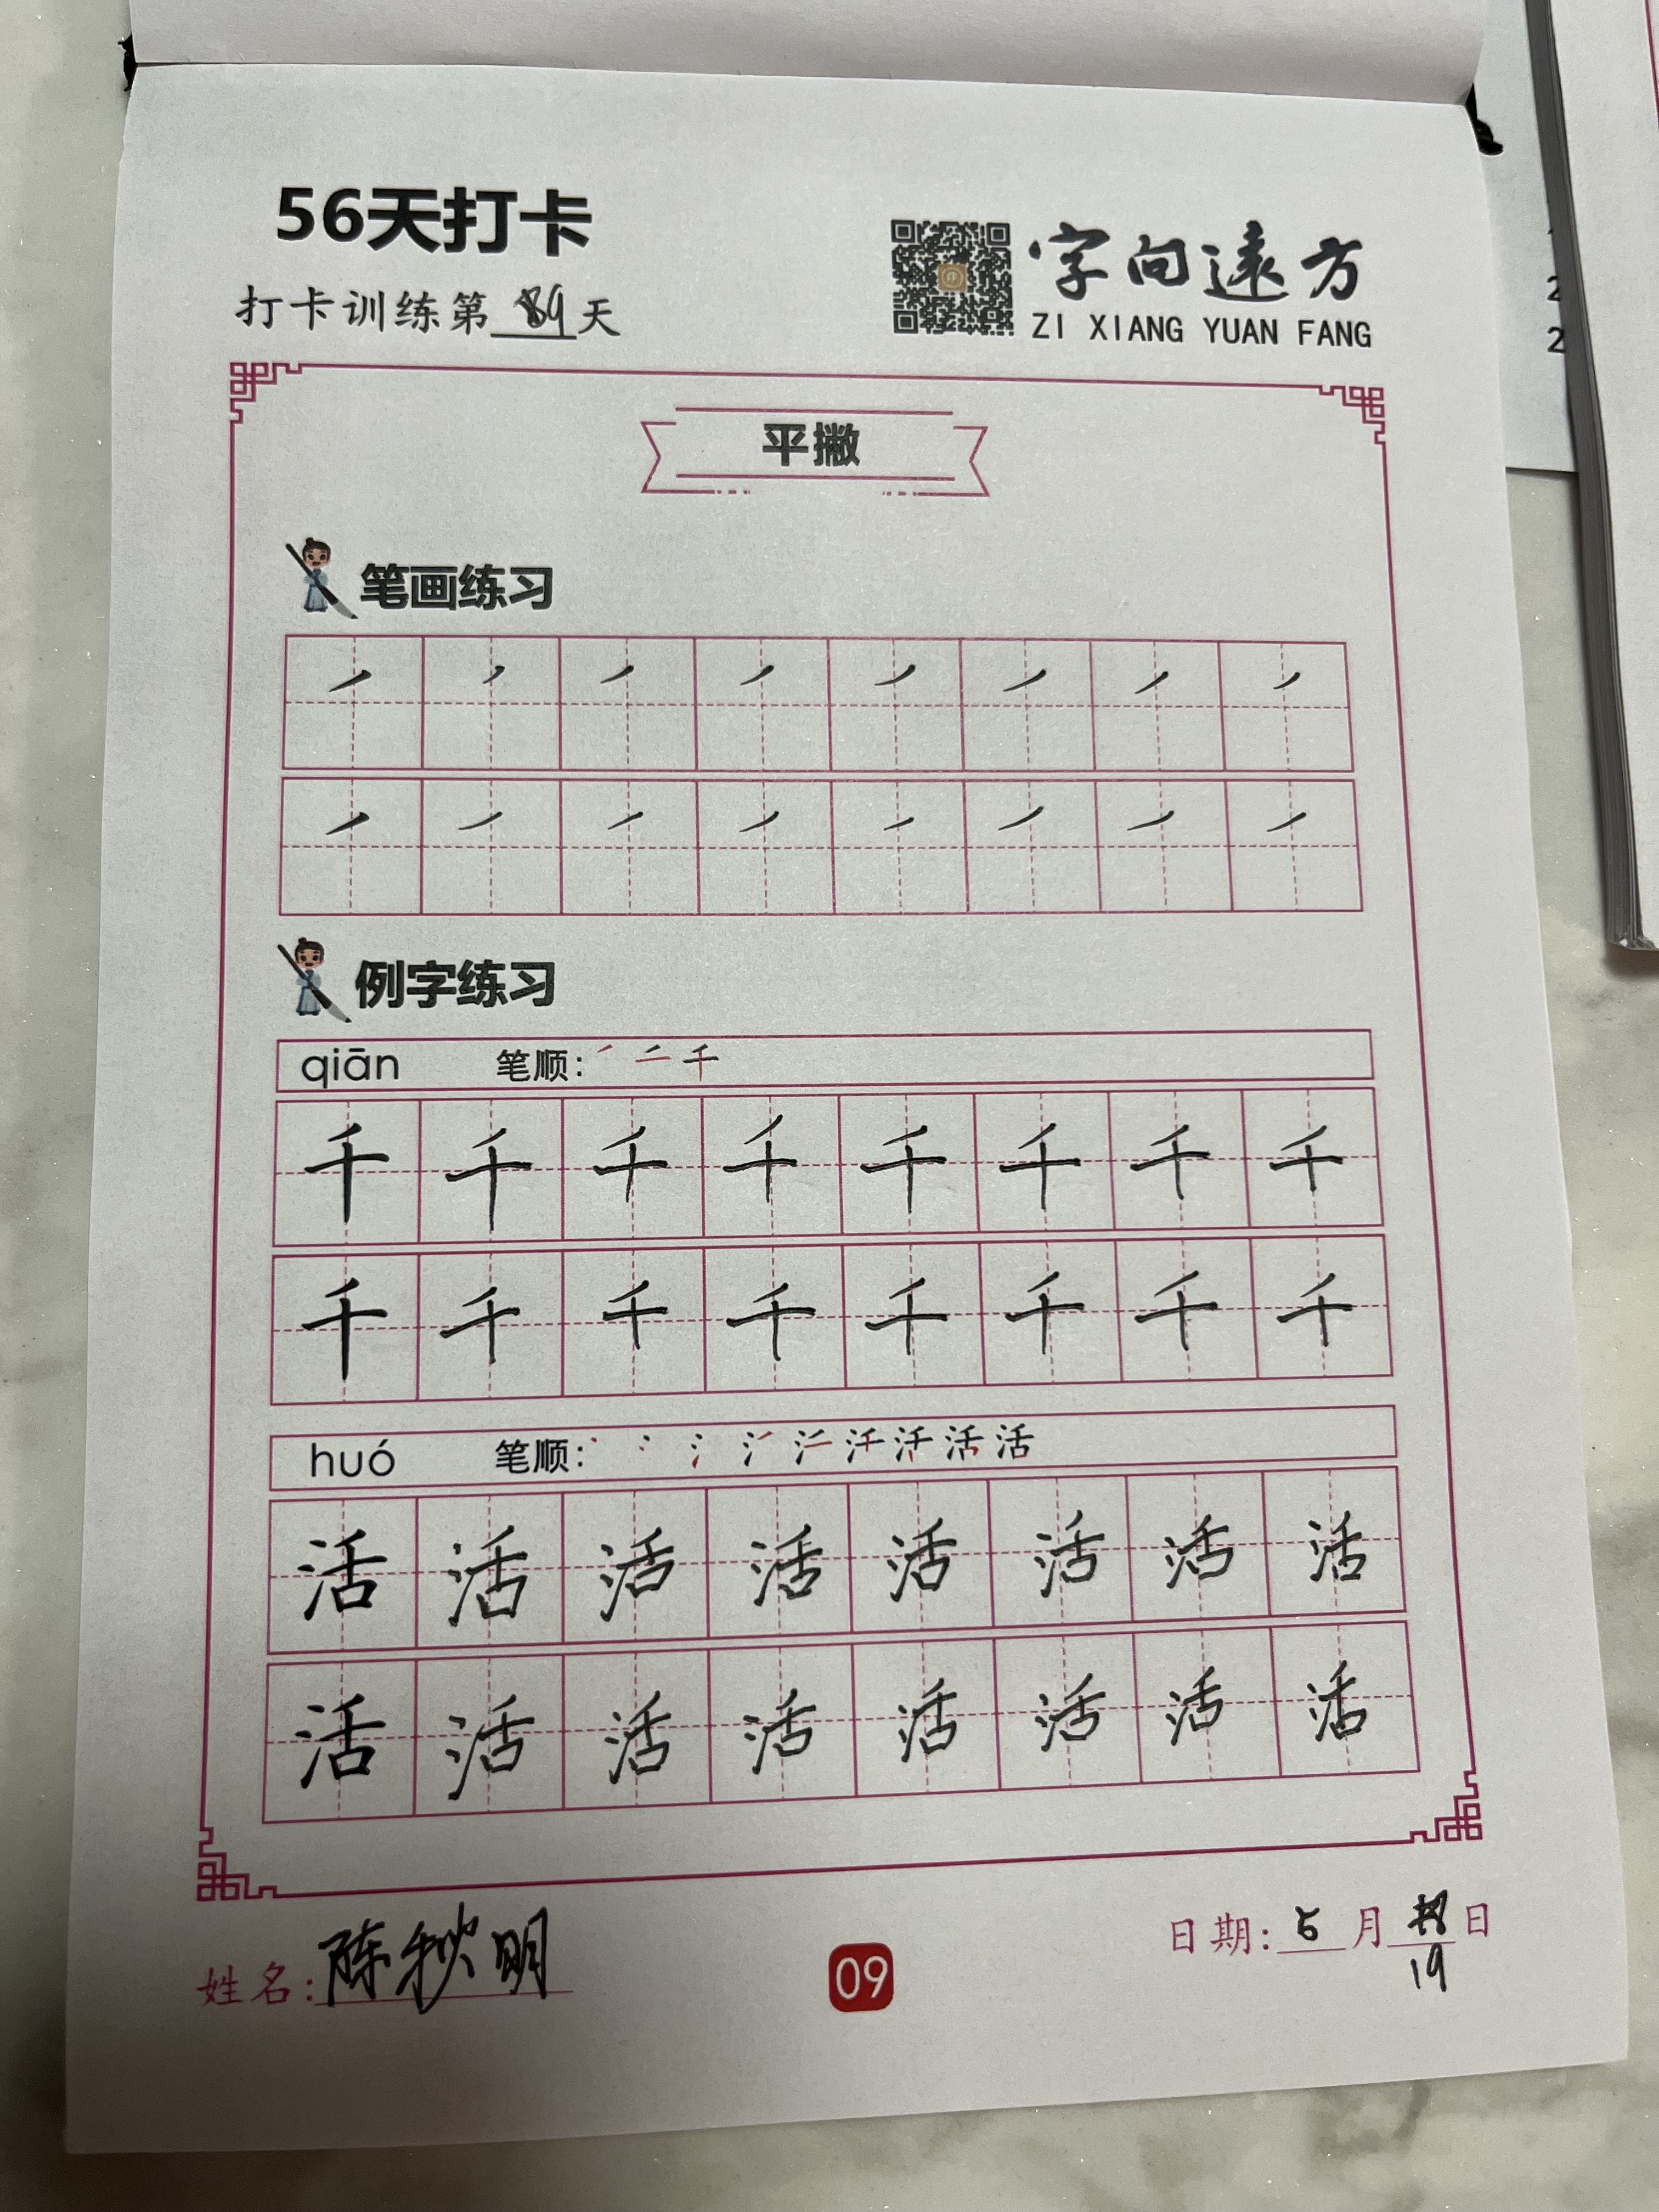 56天打卡
字向遠方
打卡训练第 9天
ZI XIANG YUAN FANG
平撇
笔画练习
例字练习
qiān 笔顺: 丿 二 千
千 千 千 千 千 千 千 千
千 千 千 千 千 千 千 千
huó 笔顺: 活
活 活 活 活 活 活 活 活
活 活 活 活 活 活 活 活
姓名: 陈秋明
09
日期: 5 月 日
19